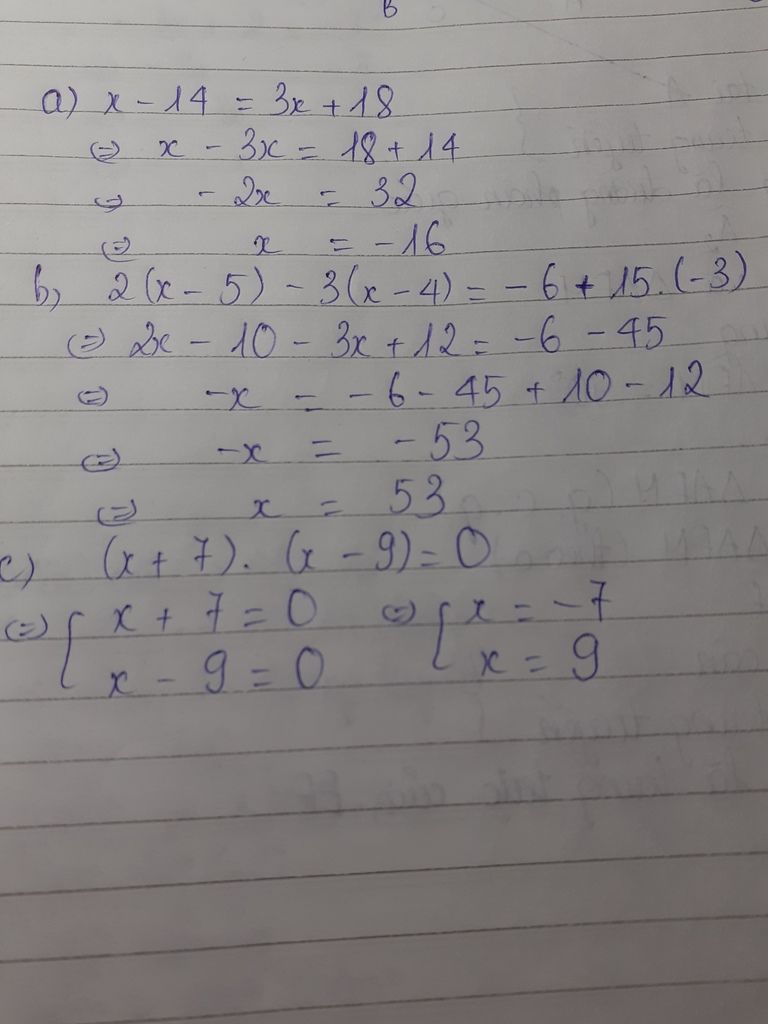 B
a) x - 14 = 3x + 18
⇔ x - 3x = 18 + 14
⇔ - 2x = 32
⇔ x = - 16
b, 2(x - 5) - 3(x - 4) = - 6 + 15.(-3)
⇔ 2x - 10 - 3x + 12 = -6 - 45
⇔ -x = - 6 - 45 + 10 - 12
⇔ -x = - 53
⇔ x = 53
c) (x + 7). (x - 9) = 0
⇔ { x + 7 = 0 ⇔ { x = - 7
x - 9 = 0 x = 9